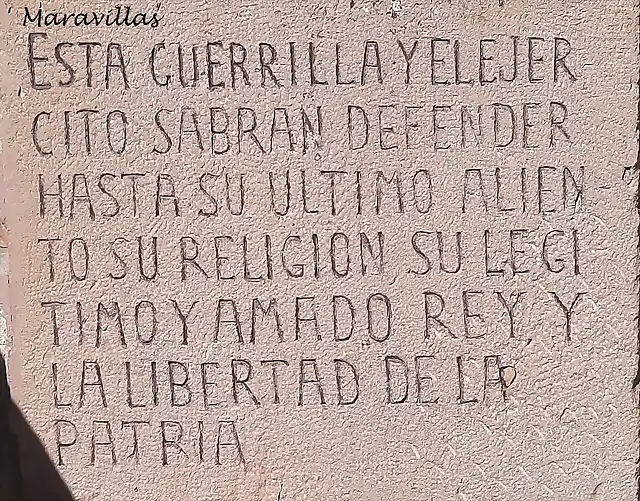 Maravillas
ESTA GUERRILLA Y EL EJER
CITO SABRAN DEFENDER
HASTA SU ULTIMO ALIEN
TO, SU RELIGION, SU LEGI
TIMO Y AMADO REY, Y
LA LIBERTAD DE LA
PATRIA